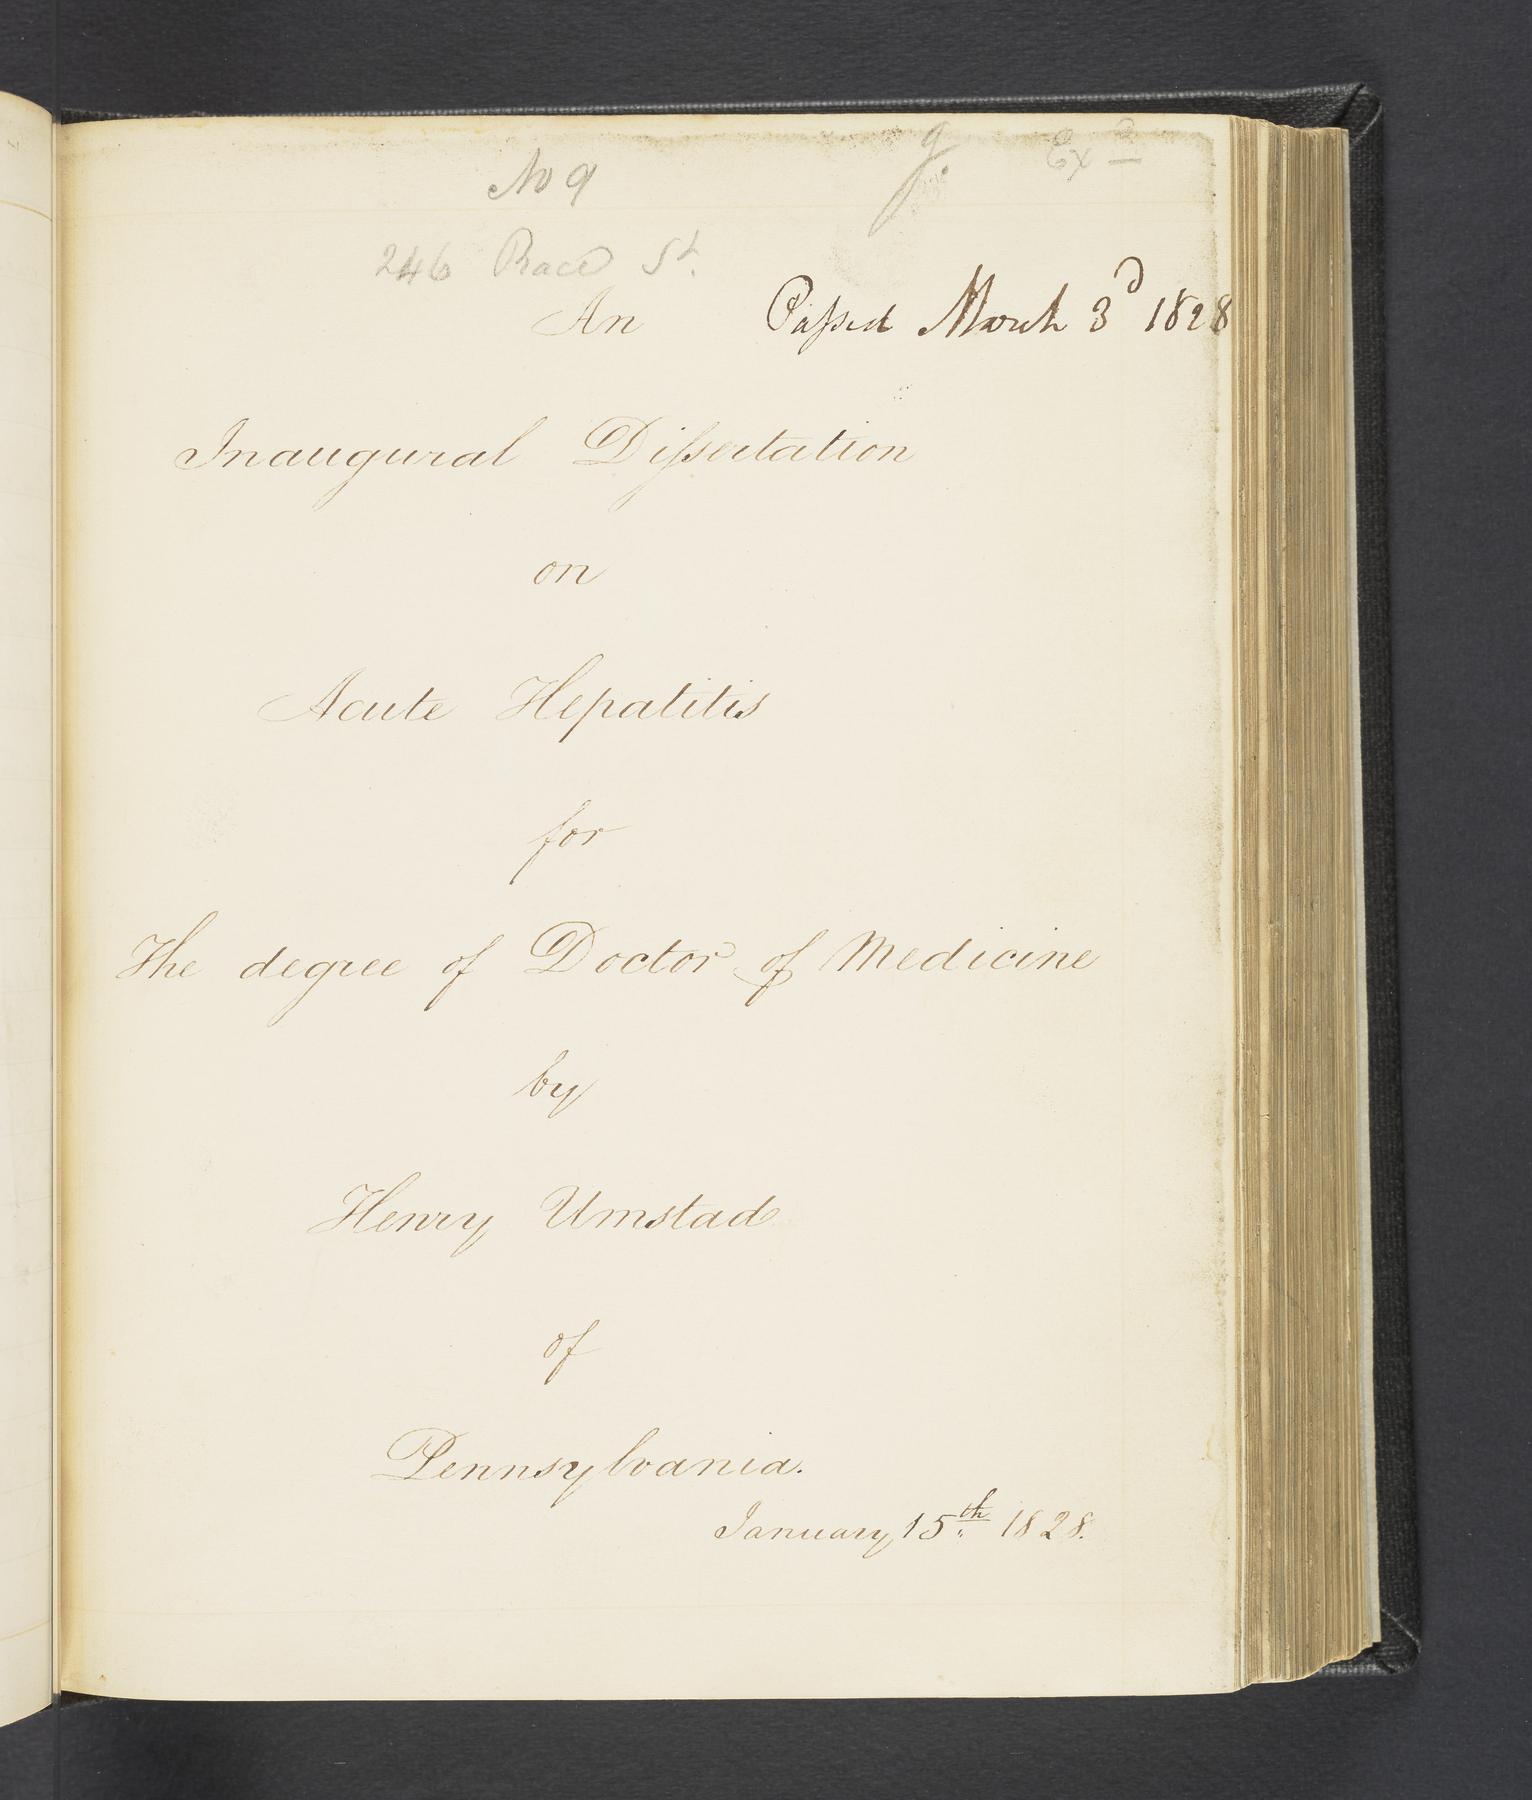 No 9
g.
Ex
246 Race St.
An
Passed March 3d 1828
Inaugural Dissertation
on
Acute Hepatitis
for
The degree of Doctor of Medicine
by
Henry Umstad
of
Pennsylvania.
January 15th 1828.